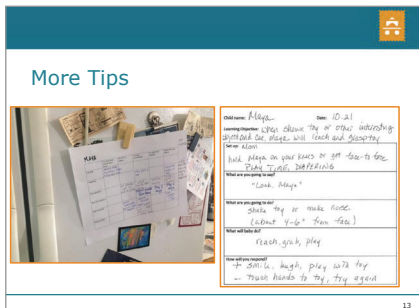 More Tips
MAYA
Child name: Maya Date: 10-21
Learning Objective: When shown toy or other interesting
object and cue, Maya will reach and grasp toy
Set up: Mom
hold Maya on your knees or get face-to face
PLAY TIME, DIAPERING
What are you going to say?
"Look, Maya"
What are you going to do?
shake toy or make noise
(about 4-6" from face)
What will baby do?
reach, grab, play
How will you respond?
+ smile, laugh, play with toy
- Touch hands to toy, try again
13